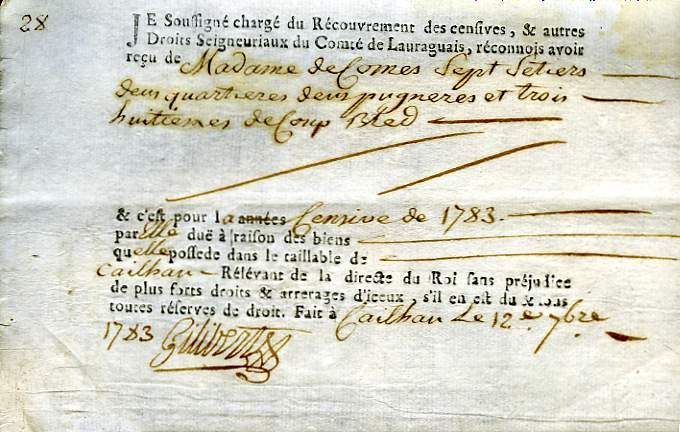 28
JE Soussigné chargé du Récouvrement des censives, & autres
Droits Seigneuriaux du Comté de Lauraguais, réconnois avoir
reçu de Madame de Comes Sept Setiers
deus quartieres deus pugneres et trois
huitiemes de Coup Bled
& c'est pour la années Censive de 1783.
par elle duë à raison des biens
qu elle possede dans le taillable de
Cailhau Rélévant de la directe du Roi sans préjudice
de plus forts droits & arrerages d'iceux, s'il en est du & sous
toutes réserves de droit. Fait à Cailhau Le 12e 7bre
1783 Gilibert